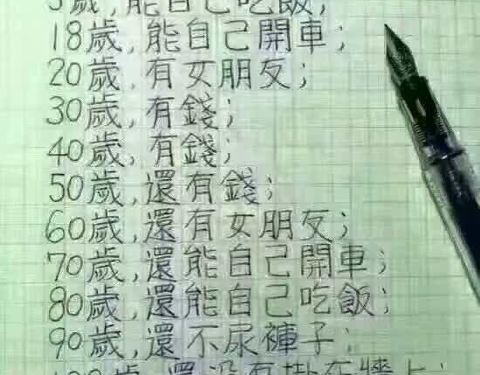 5歲,能自己吃飯;
18歲,能自己開車;
20歲,有女朋友;
30歲,有錢;
40歲,有錢;
50歲,還有錢;
60歲,還有女朋友;
70歲,還能自己開車;
80歲,還能自己吃飯;
90歲,還不尿褲子;
100歲,還沒有掛在牆上;